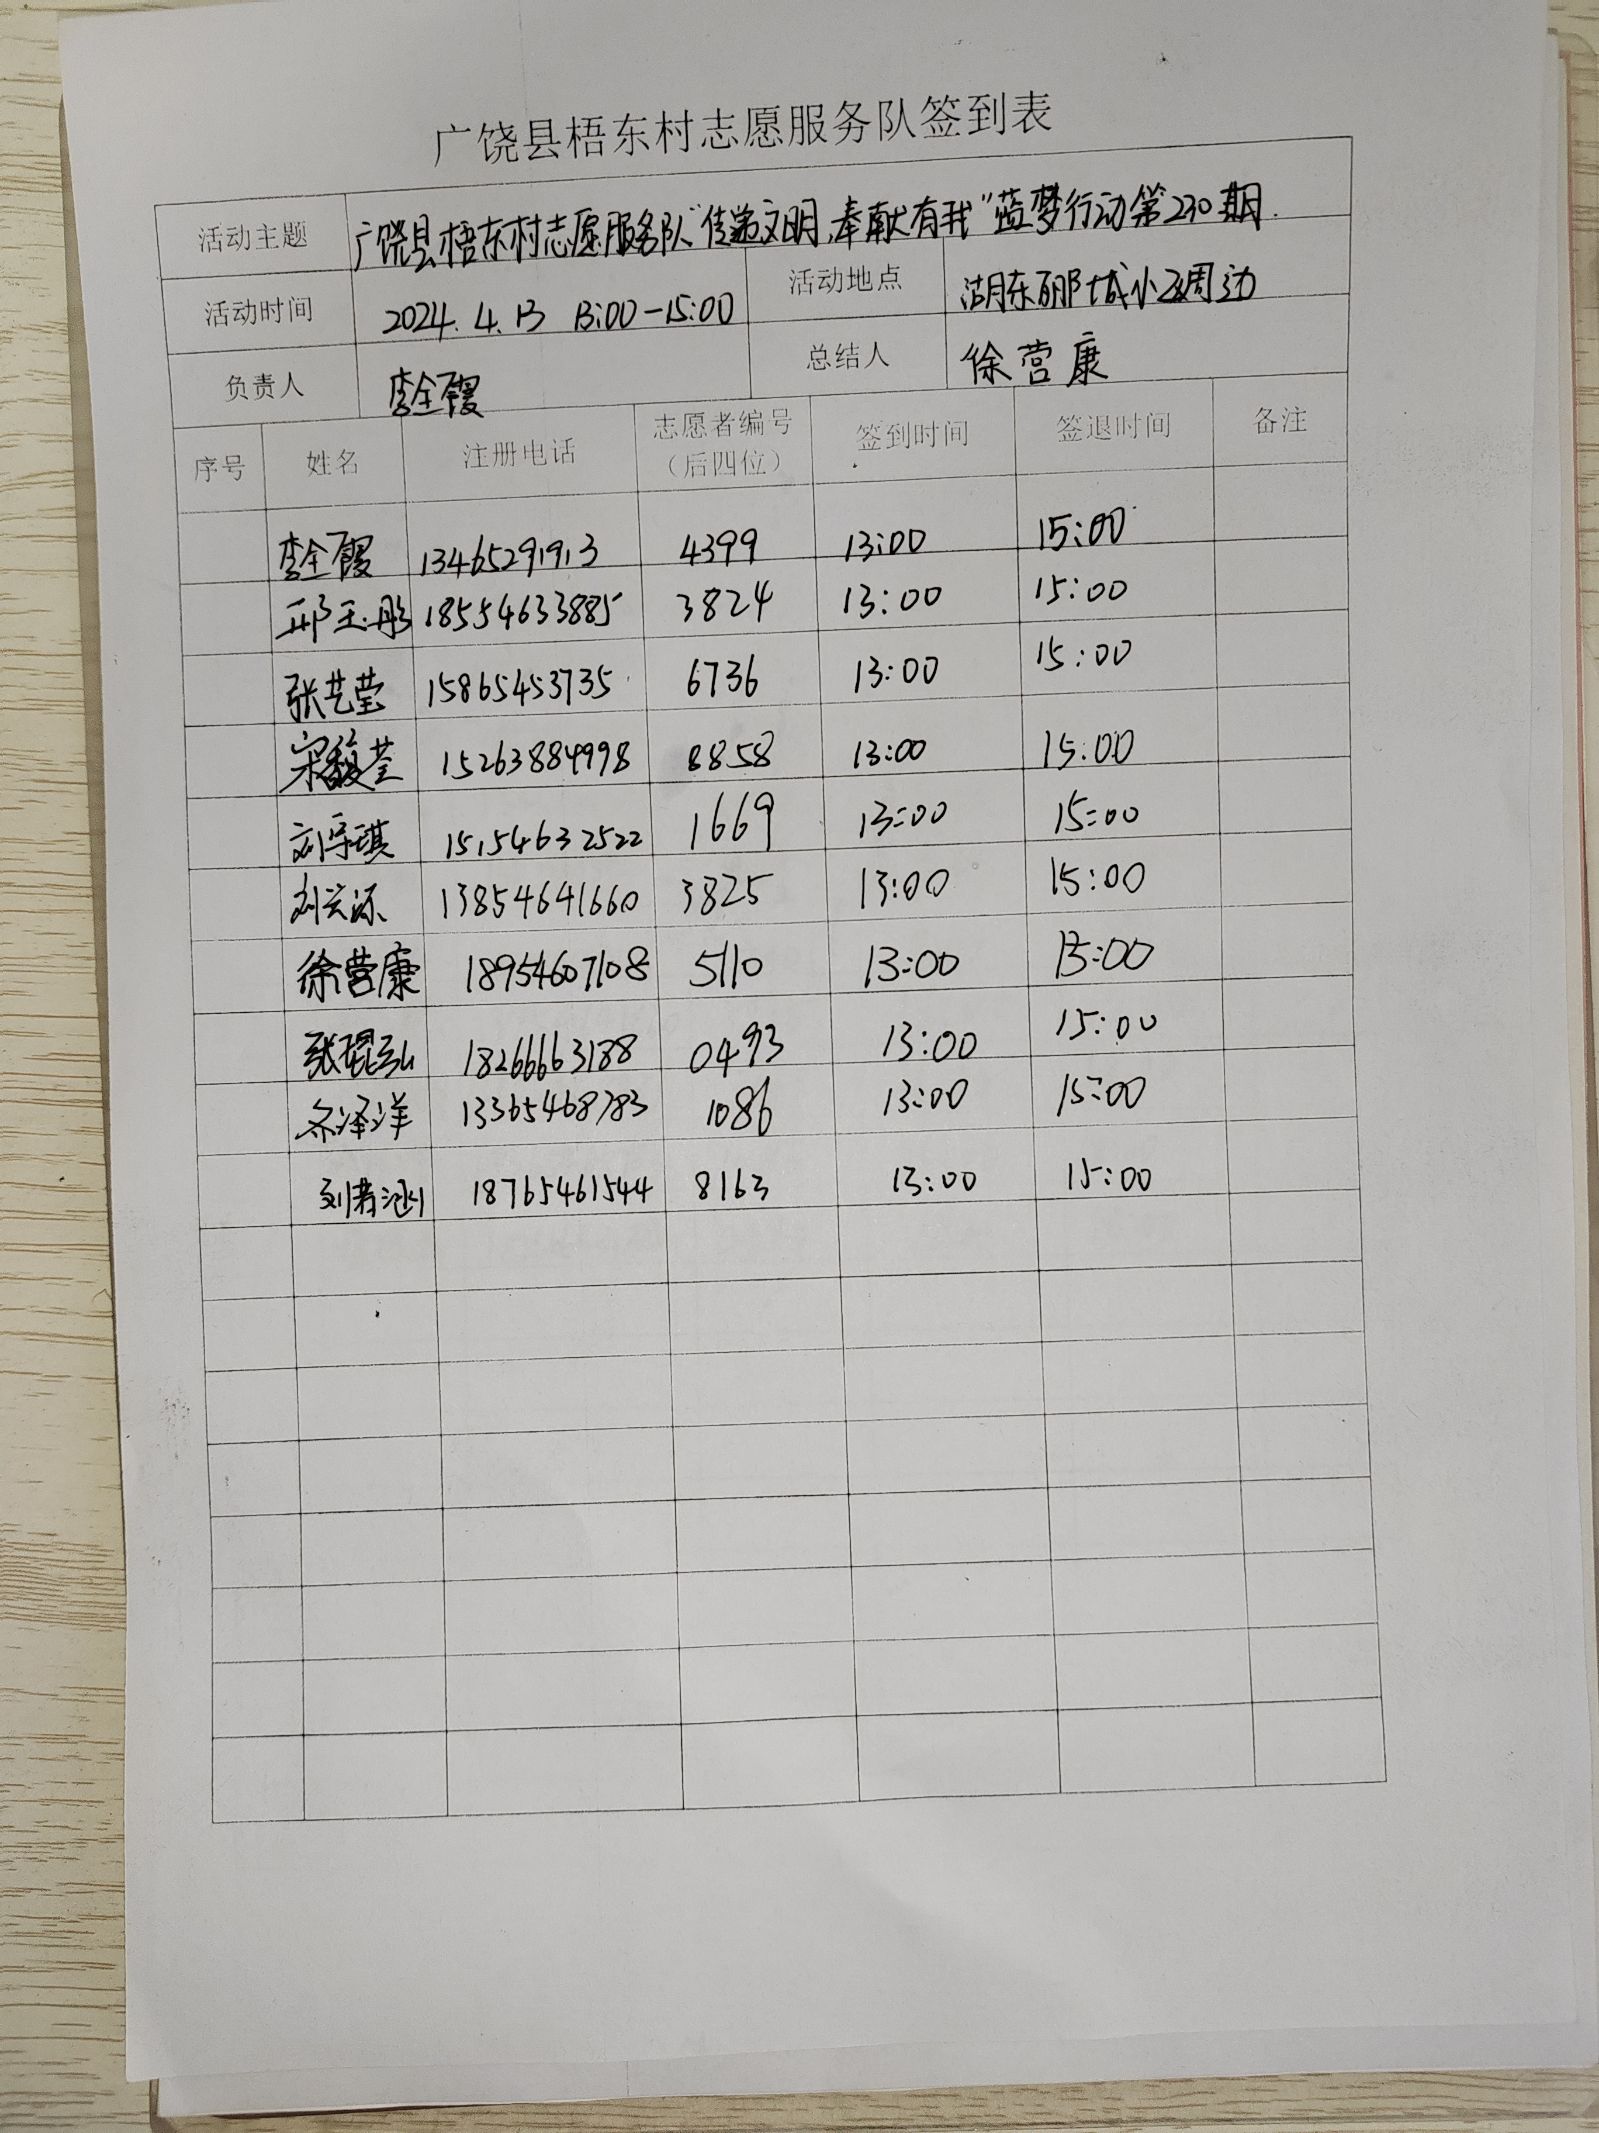 广饶县梧东村志愿服务队签到表
活动主题 广饶县梧东村志愿服务队"传递文明,奉献有我"蓝梦行动第230期.
活动时间 2024.4.13 13:00-15:00 活动地点 湖东丽都城小区周边
负责人 李全霞 总结人 徐营康
序号 姓名 注册电话 志愿者编号(后四位) 签到时间 签退时间 备注
李全霞 13465291913 4399 13:00 15:00
邱玉彤 18554633885 3824 13:00 15:00
张艺莹 15865453735 6736 13:00 15:00
宋馥荃 15263884998 8858 13:00 15:00
刘宇琪 15154632522 1669 13:00 15:00
刘兴源 13854641660 3825 13:00 15:00
徐营康 18954607108 5110 13:00 15:00
张琨弘 18266663188 0493 13:00 15:00
泽洋 13365468783 1086 13:00 15:00
刘若涵 18765461544 8163 13:00 15:00